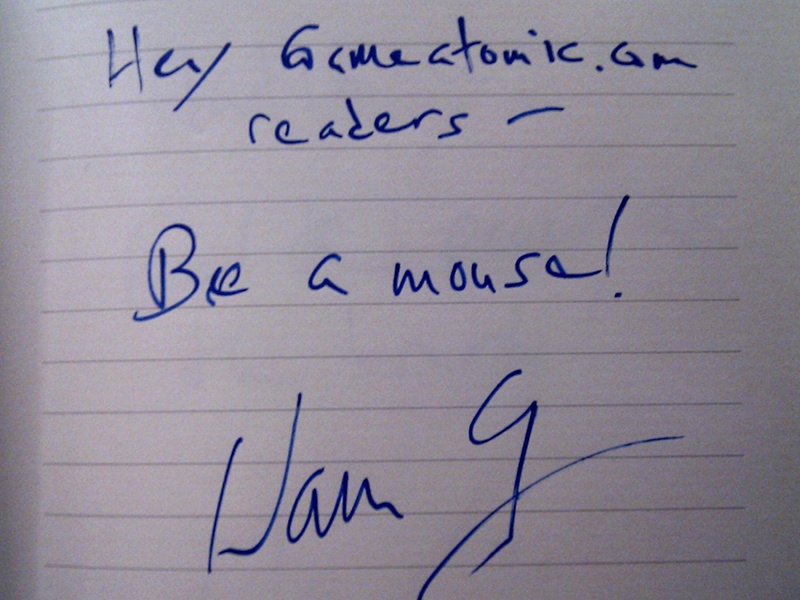 Hey Gameatomic.com
readers —
Be a mouse!